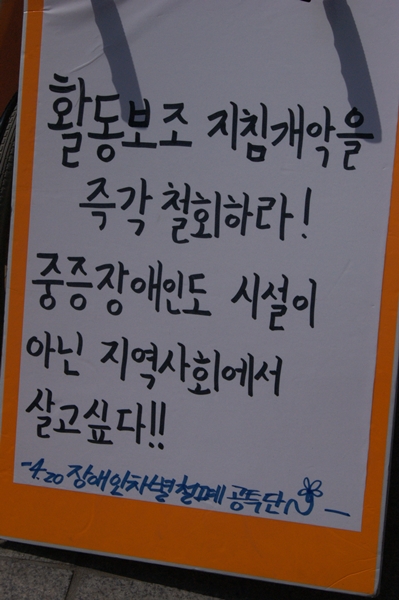 활동보조 지침개악을
즉각 철회하라!
중증장애인도 시설이
아닌 지역사회에서
살고싶다!!
-4.20 장애인차별철폐 공투단 -